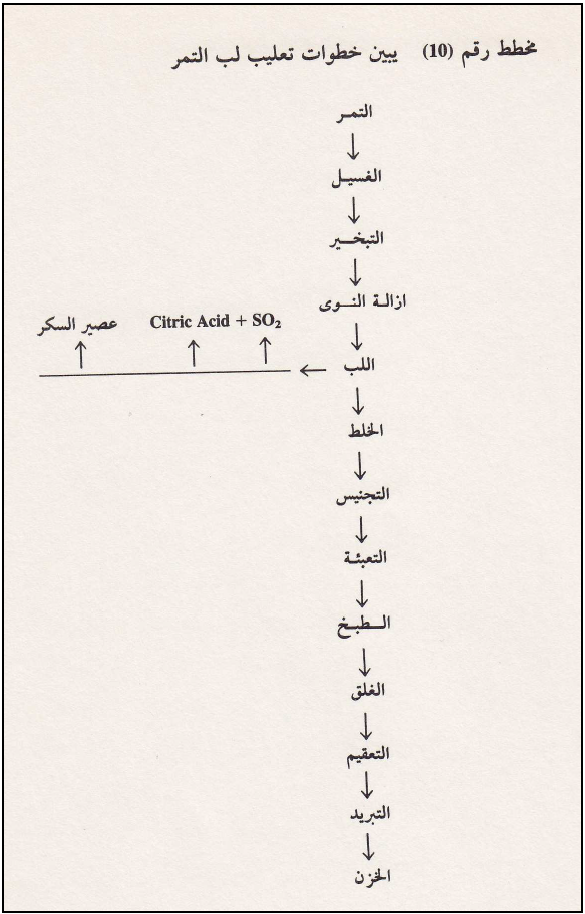 مخطط رقم (10) يبين خطوات تعليب لب التمر
التمـر
الغسيـل
التبخـير
ازالـة النـوى
Citric Acid + SO₂ عصير السكر
اللب
الخلط
التجنيس
التعبئـة
الـطبـخ
الغلق
التعقيم
التبريد
الخزن